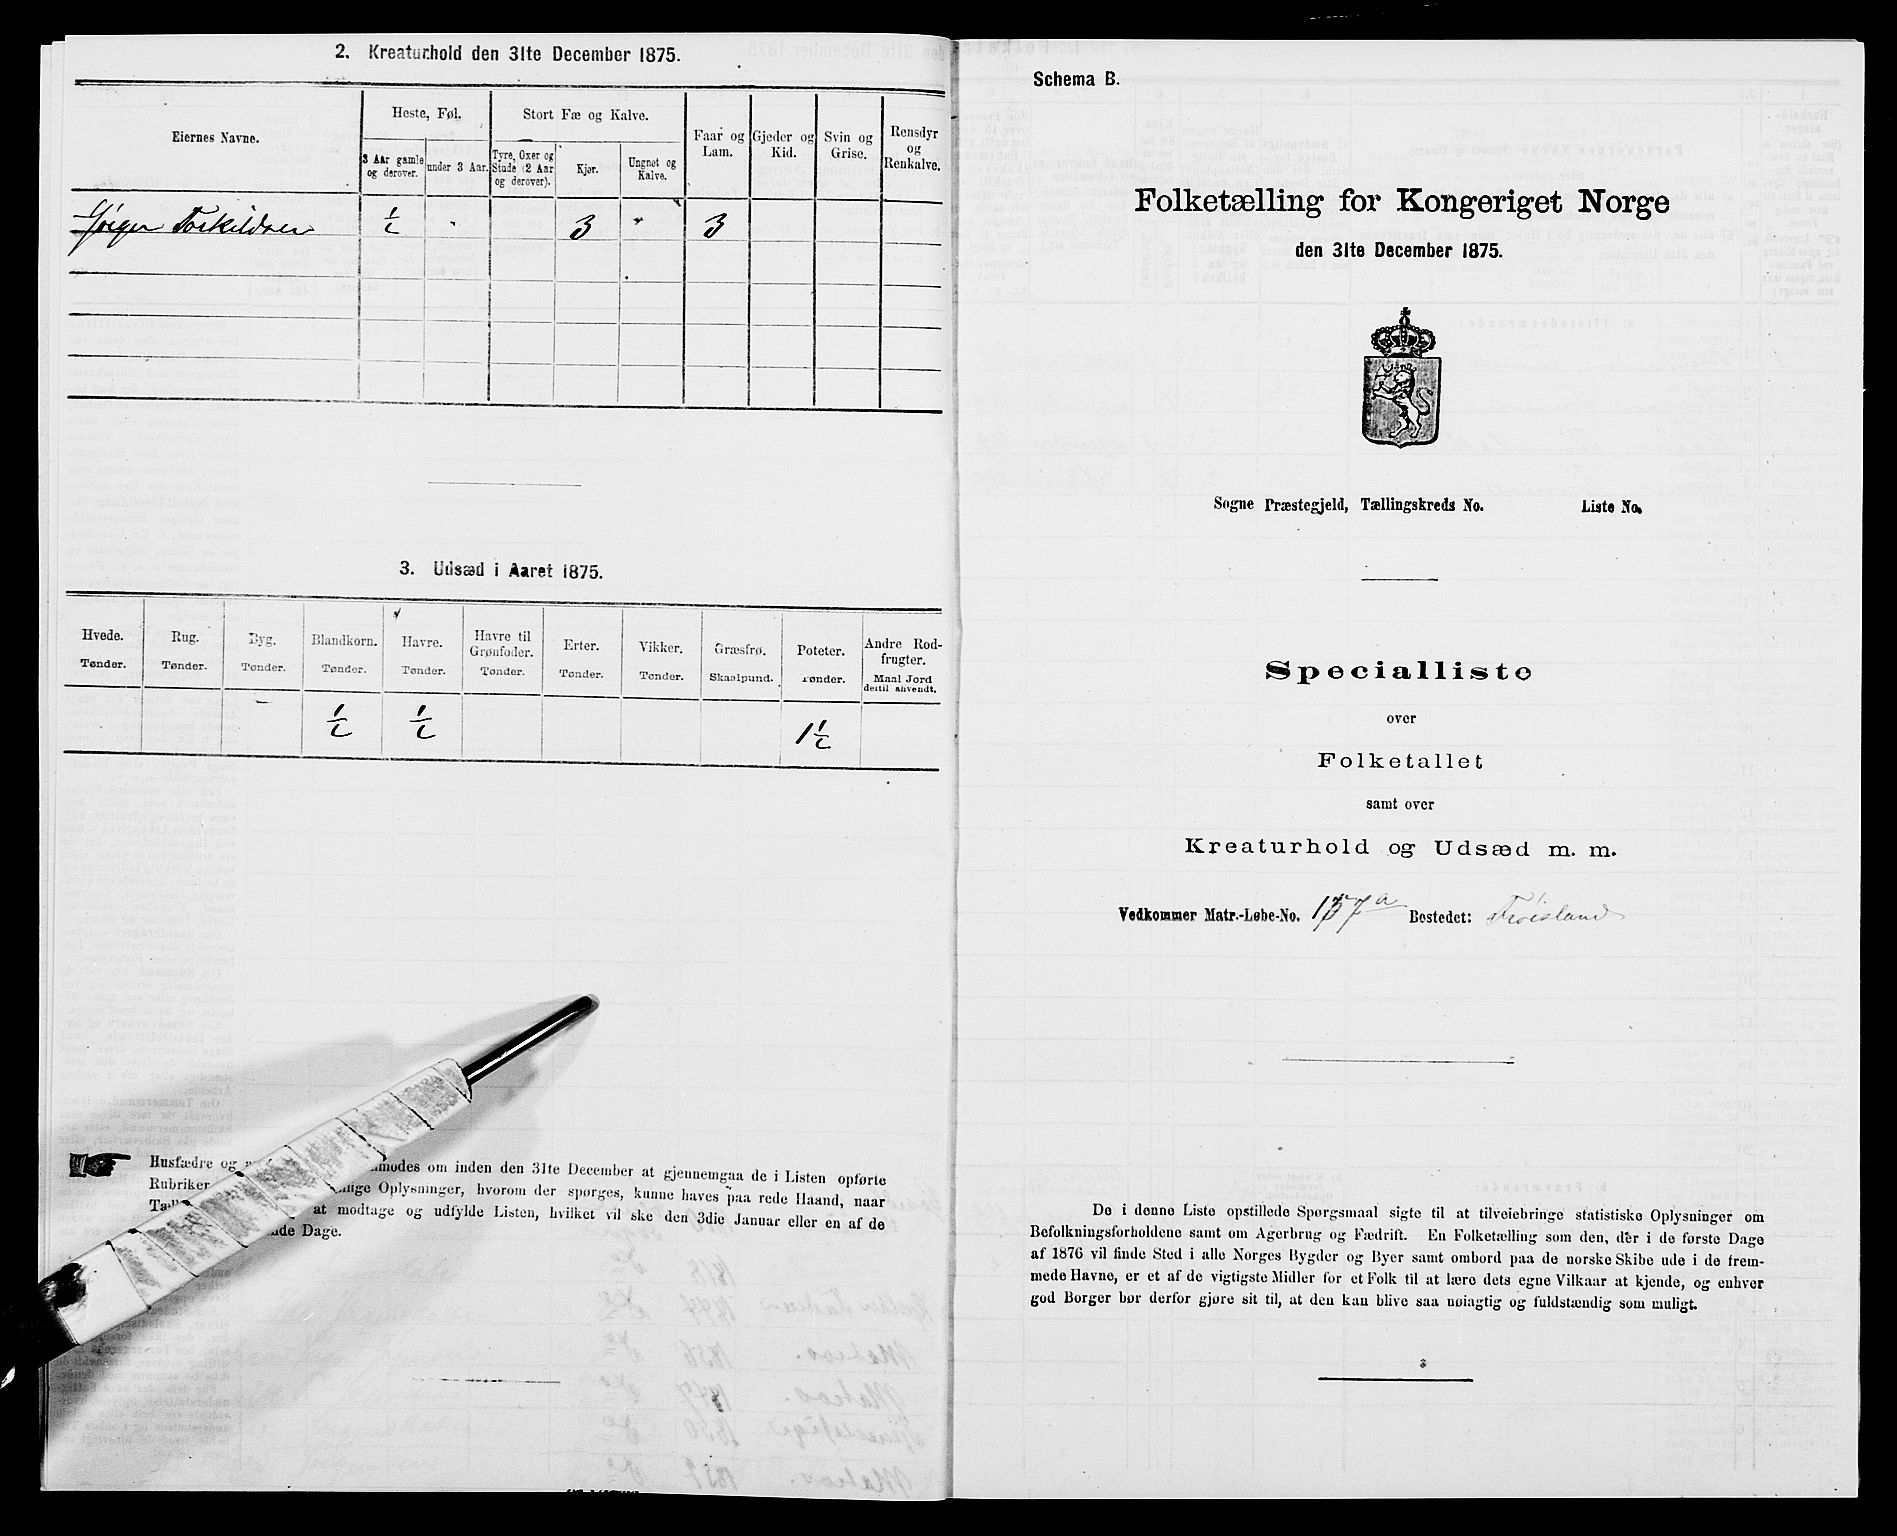 2. Kreaturhold den 31te December 1875.
Eiernes Navne.
Heste, Føl.
Stort Fæ og Kalve.
Faar og Lam.
Gjeder og Kid.
Svin og Grise.
Rensdyr og Renkalve.
3 Aar gamle og derover.
under 3 Aar.
Tyre, Oxer og Stude (2 Aar og derover).
Kjør.
Ungnøt og Kalve.
Jørgen Torkildsen ½ " 3 " 3
3. Udsæd i Aaret 1875.
Hvede. Rug. Byg. Blandkorn. Havre. Havre til Grønfoder. Erter. Vikker. Græsfrø. Poteter. Andre Rodfrugter.
Tønder. Tønder. Tønder. Tønder. Tønder. Tønder. Tønder. Tønder. Skaalpund. Tønder. Maal Jord dertil anvendt.
½ ½ 1½
Husfædre og
modes om inden den 31te December at gjennemgaa de i Listen opførte
Rubriker
Oplysninger, hvorom der spørges, kunne haves paa rede Haand, naar
at modtage og udfylde Listen, hvilket vil ske den 3die Januar eller en af de
Dage.
Schema B.
Folketælling for Kongeriget Norge
den 31te December 1875.
Sogne Præstegjeld, Tællingskreds No. Liste No.
Specialliste
over
Folketallet
samt over
Kreaturhold og Udsæd m. m.
Vedkommer Matr.-Løbe-No. 157a Bostedet: Frøisland
De i denne Liste opstillede Spørgsmaal sigte til at tilveiebringe statistiske Oplysninger om
Befolkningsforholdene samt om Agerbrug og Fædrift. En Folketælling som den, der i de første Dage
af 1876 vil finde Sted i alle Norges Bygder og Byer samt ombord paa de norske Skibe ude i de frem-
mede Havne, er et af de vigtigste Midler for et Folk til at lære dets egne Vilkaar at kjende, og enhver
god Borger bør derfor gjøre sit til, at den kan blive saa nøiagtig og fuldstændig som muligt.